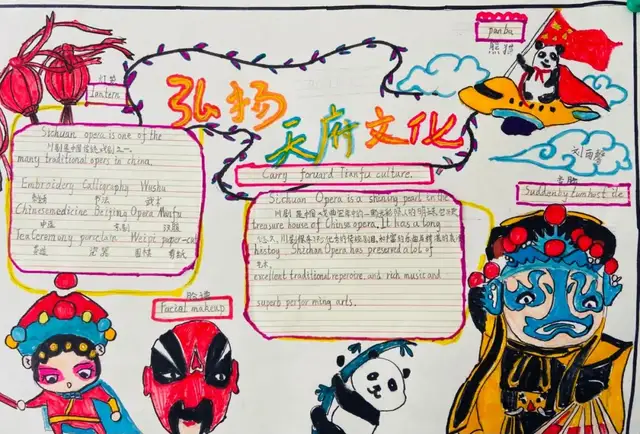 panba
熊猫
灯笼
Lantern
弘扬
天府文化
刘雨馨
Carry forward Tianfu culture.
变脸
Sichuan opera is one of the
川剧是中国传统戏剧之一,
many traditional opers in china.
Embroidery Calligraphy Wushu
刺绣 书法 武术
Chinesemedicine Beijing Opera Hanfu
中医 京剧 汉服
Tea Ceremony porcelain Weiqi paper-cut
茶道 瓷器 围棋 剪纸
Sichuan Opera is a shining pearl in the
treasure house of Chinese opera. It has a long
histoy. Shichan Opera has preserved a lot of
艺术,
excellent traditional reperoire, and rich music and
superb performing arts.
脸谱
Facial makeup